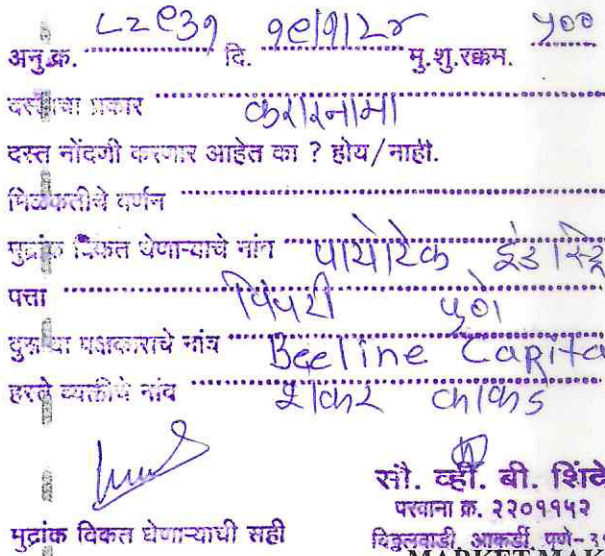 अनु.क्र. ८२९३१ दि. १९/१/२४ मु.शु.रक्कम. ५००
दस्ताचा प्रकार करारनामा
दस्त नोंदणी करणार आहेत का ? होय/नाही.
मिळकतीचे वर्णन
मुद्रांक विकत घेणाऱ्याचे नांव पायोटेक इंडस्ट्रि
पत्ता पिंपरी पुणे
दुसऱ्या पक्षकाराचे नांव Beeline Capita
हस्ते व्यक्तीचे नांव शंकर काकडे
सौ. व्ही. बी. शिंदे
परवाना क्र. २२०११५२
मुद्रांक विकत घेणाऱ्याची सही
विठ्ठलवाडी, आकुर्डी, पुणे-३५
MARKET MAK